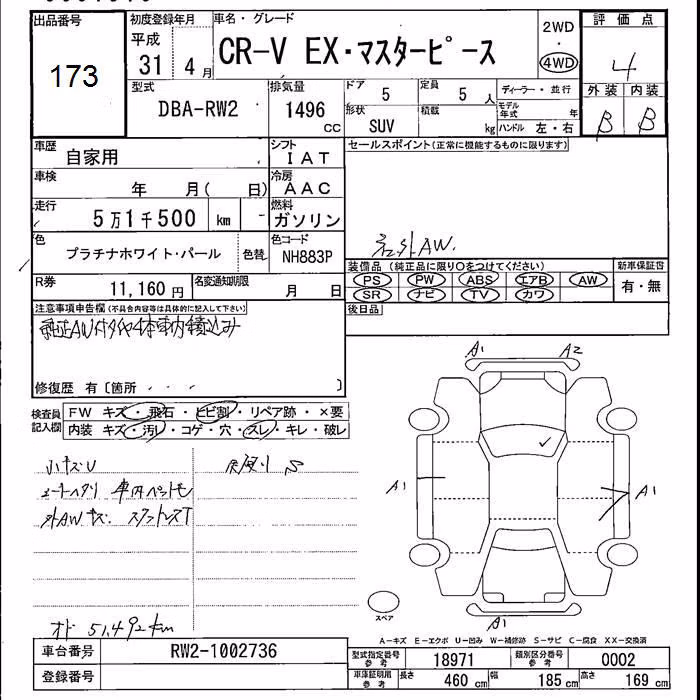 出品番号
173
初度登録年月
平成
31 4月
車名・グレード
CR-V EX・マスターピース
2WD
・
4WD
評価点
4
外装 内装
B B
型式
DBA-RW2
排気量
1496
cc
ドア
5
定員
5 人
形状
SUV
積載
kg
ディーラー・並行
モデル年式 年
ハンドル 左・右
車歴
自家用
シフト
IAT
車検
年 月( 日)
冷房
AAC
走行
5万1千500 km -
燃料
ガソリン
色
プラチナホワイト・パール
色替
色コード
NH883P
R券
11,160円
名変通知期限
月 日
セールスポイント(正常に機能するものに限ります)
社外AW.
装備品(純正品に限り○をつけてください)
PS PW ABS エアB AW
SR ナビ TV カワ
新車保証書
有・無
後日品
注意事項申告欄(不具合内容等は具体的に記入して下さい)
純正AW付タイヤ4本車内積込み
修復歴 有〔箇所 〕
検査員記入欄
FW キズ・飛石・ヒビ割・リペア跡・×要
内装 キズ・汚レ・コゲ・穴・スレ・キレ・破レ
小キズU
シートヘタリ 車内ペット毛
外AWキズ スタットレスT
S
オド 51,492km
A1 A2
A1
A1
A1
スペア
A-キズ E-エクボ U-凹み W-補修跡 S-サビ C-腐食 XX-交換済
車台番号
RW2-1002736
登録番号
型式指定番号 参考
18971
類別区分番号 参考
0002
車庫証明用 参考
長さ 460 cm
幅 185 cm
高さ 169 cm